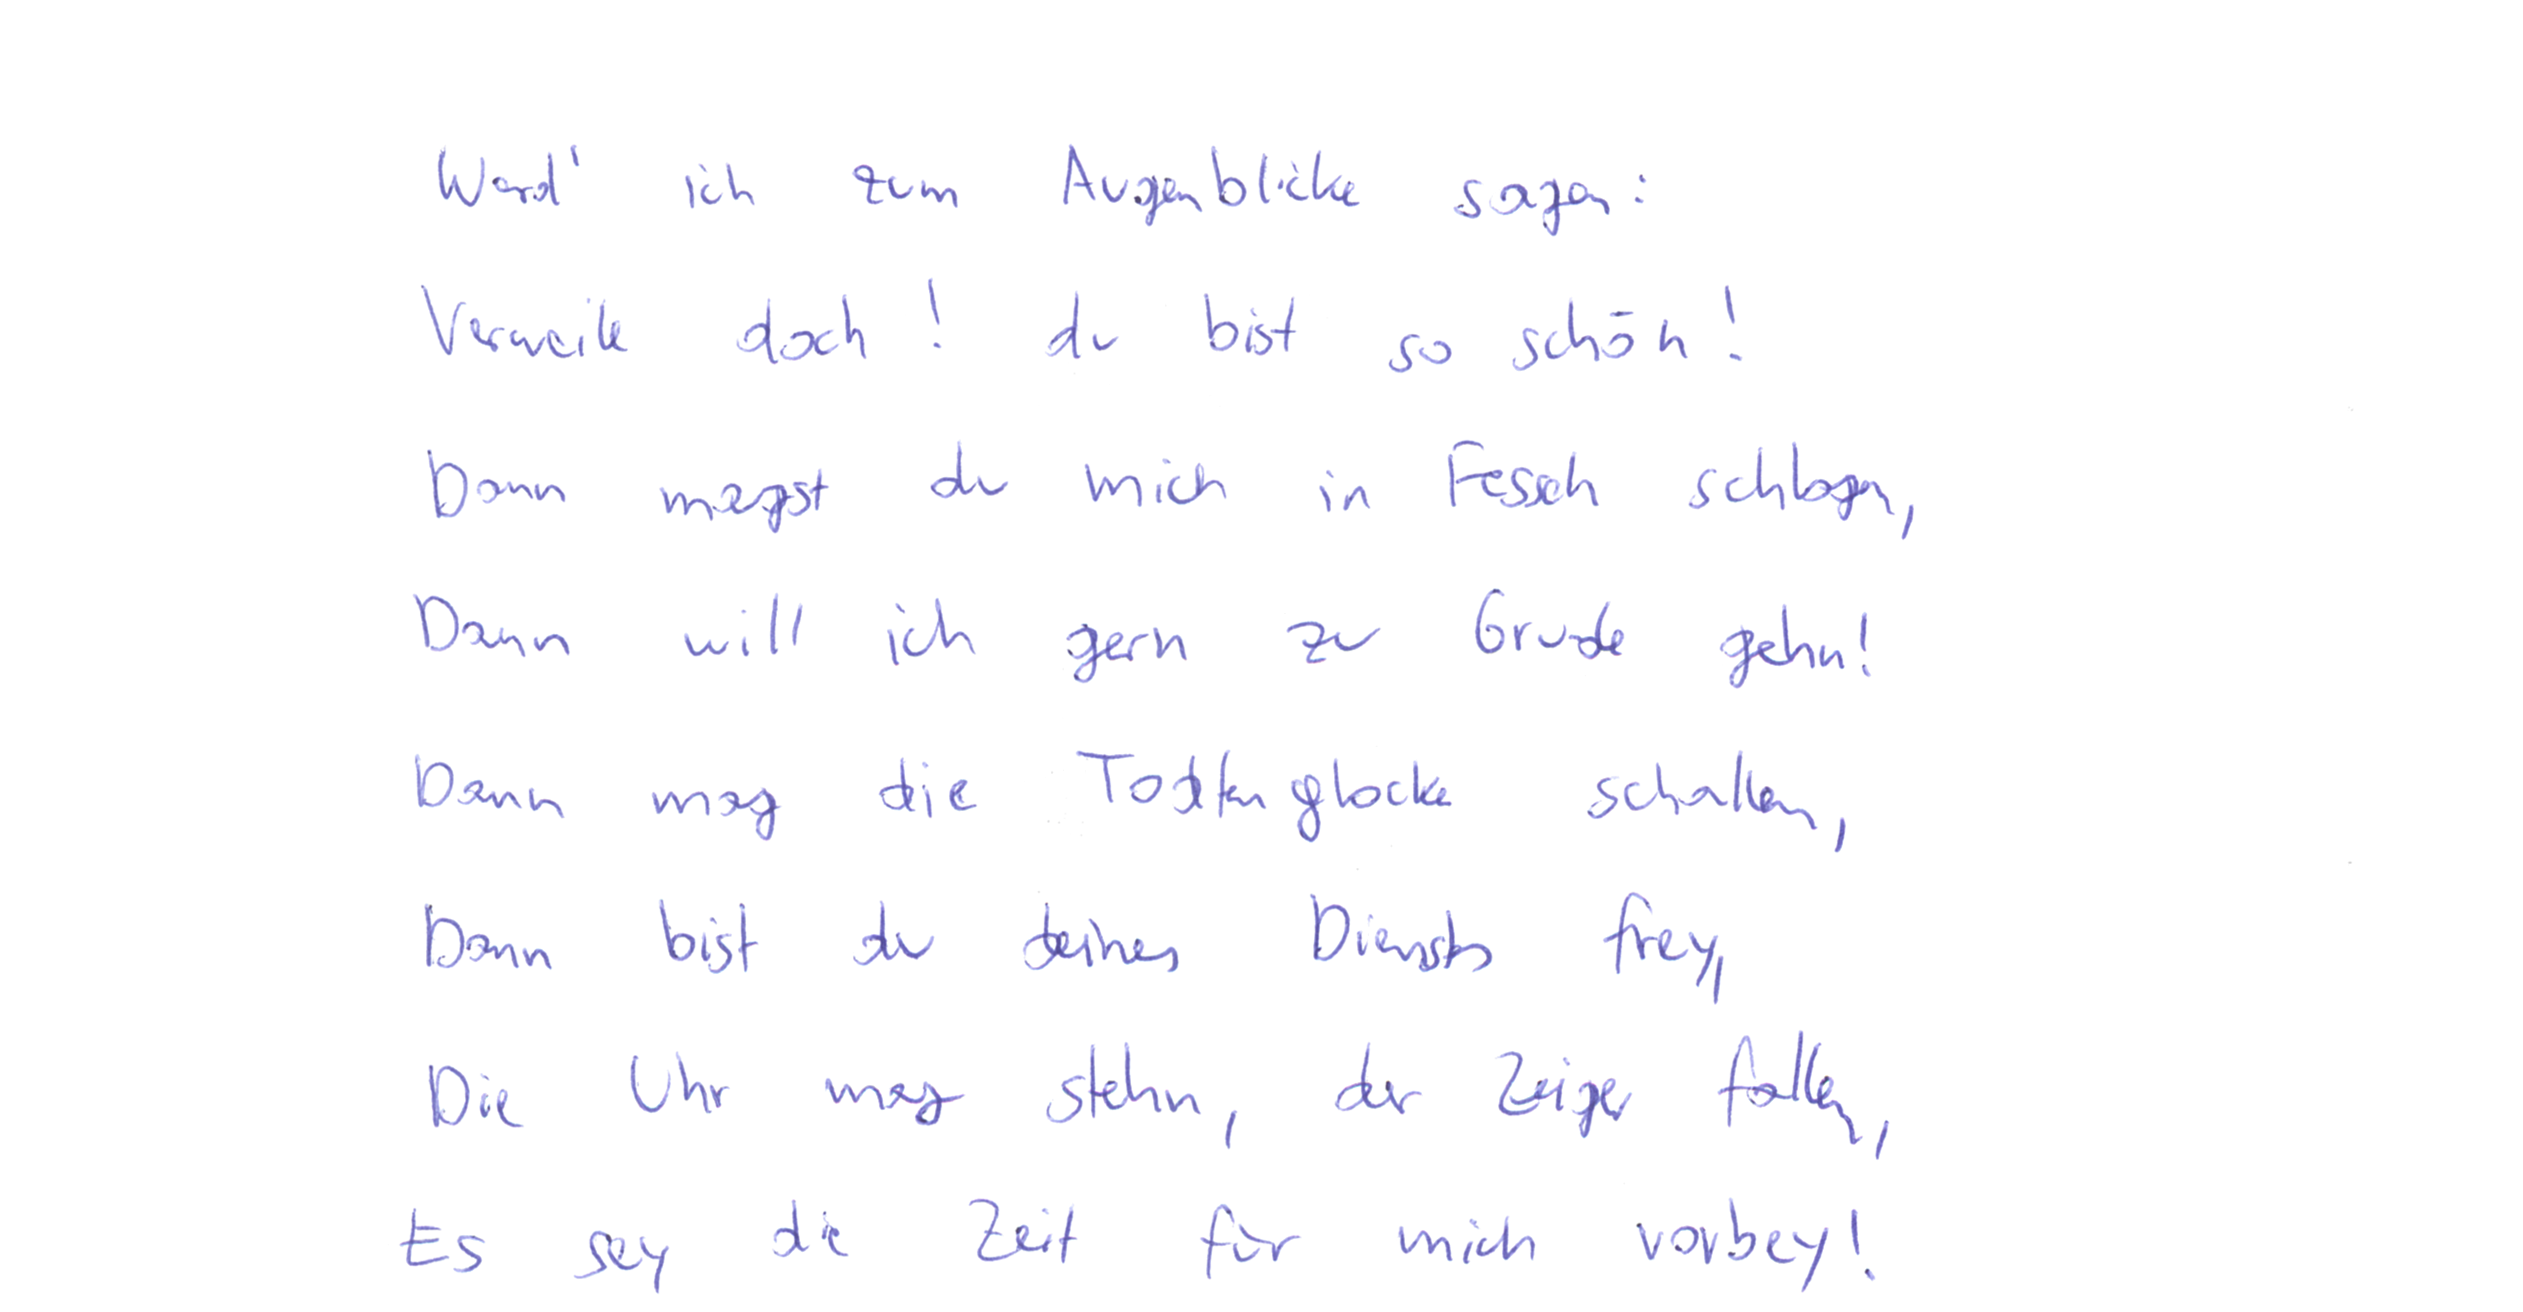 Werd' ich zum Augenblicke sagen:
Verweile doch! du bist so schön!
Dann magst du mich in Fesseln schlagen,
Dann will ich gern zu Grude gehn!
Dann mag die Todtenglocke schallen,
Dann bist du deines Diensts frey,
Die Uhr mag stehn, der Zeiger fallen,
Es sey die Zeit für mich vorbey!